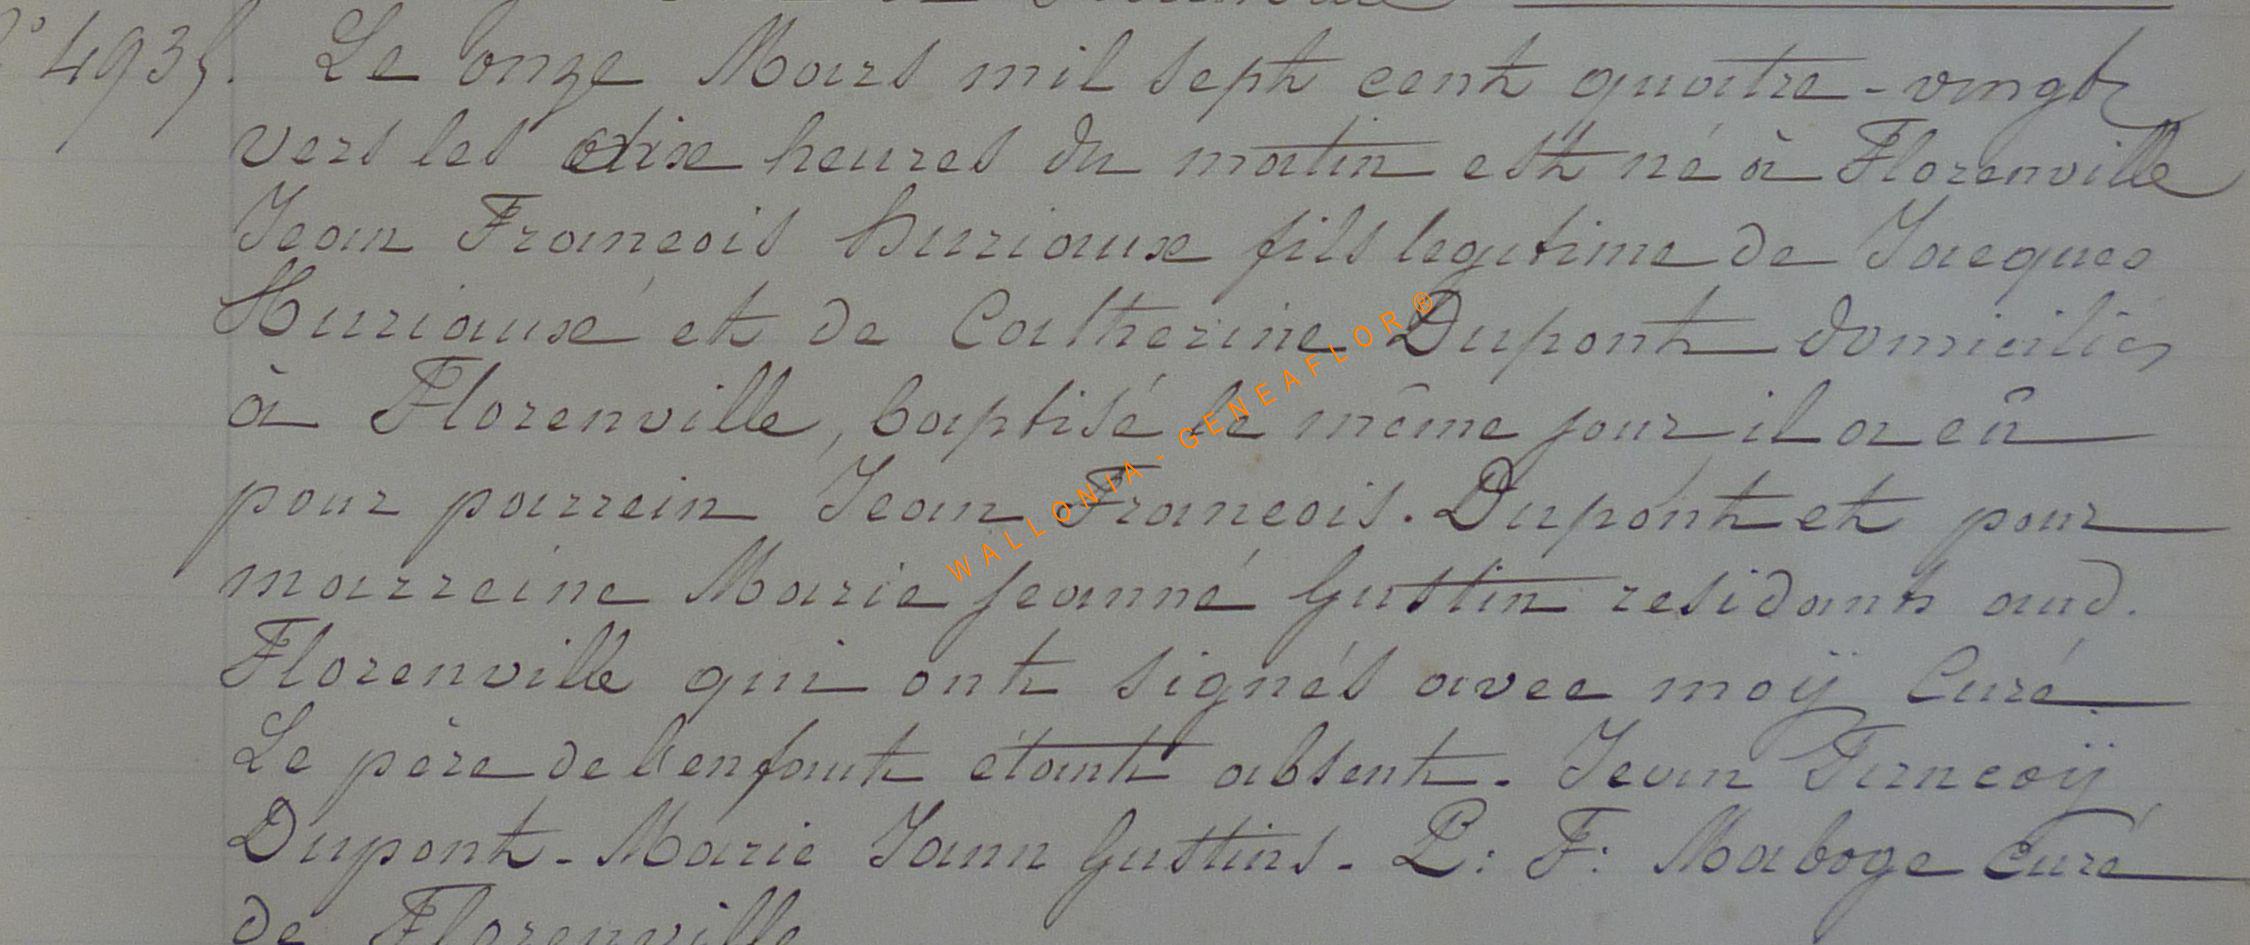 N° 4935. Le onze Mars mil sept cent quatre-vingt
vers les dix heures du matin est né à Florenville
Jean Francois huriaux fils legitime de Jacques
Huriaux et de Catherine Dupont domiciliés
à Florenville, baptisé le même jour il a eû
pour parrein Jean Francois. Dupont et pour
marreine Marie Jeanne Gustin residants aud.
Florenville qui ont signés avec moÿ Curé
Le père de l'enfant étant absent. Jean Francoÿ
Dupont - Marie Jann Gustins - P: F: Maboge Curé
de Florenville
WALLONIA - GENEAFLOR®